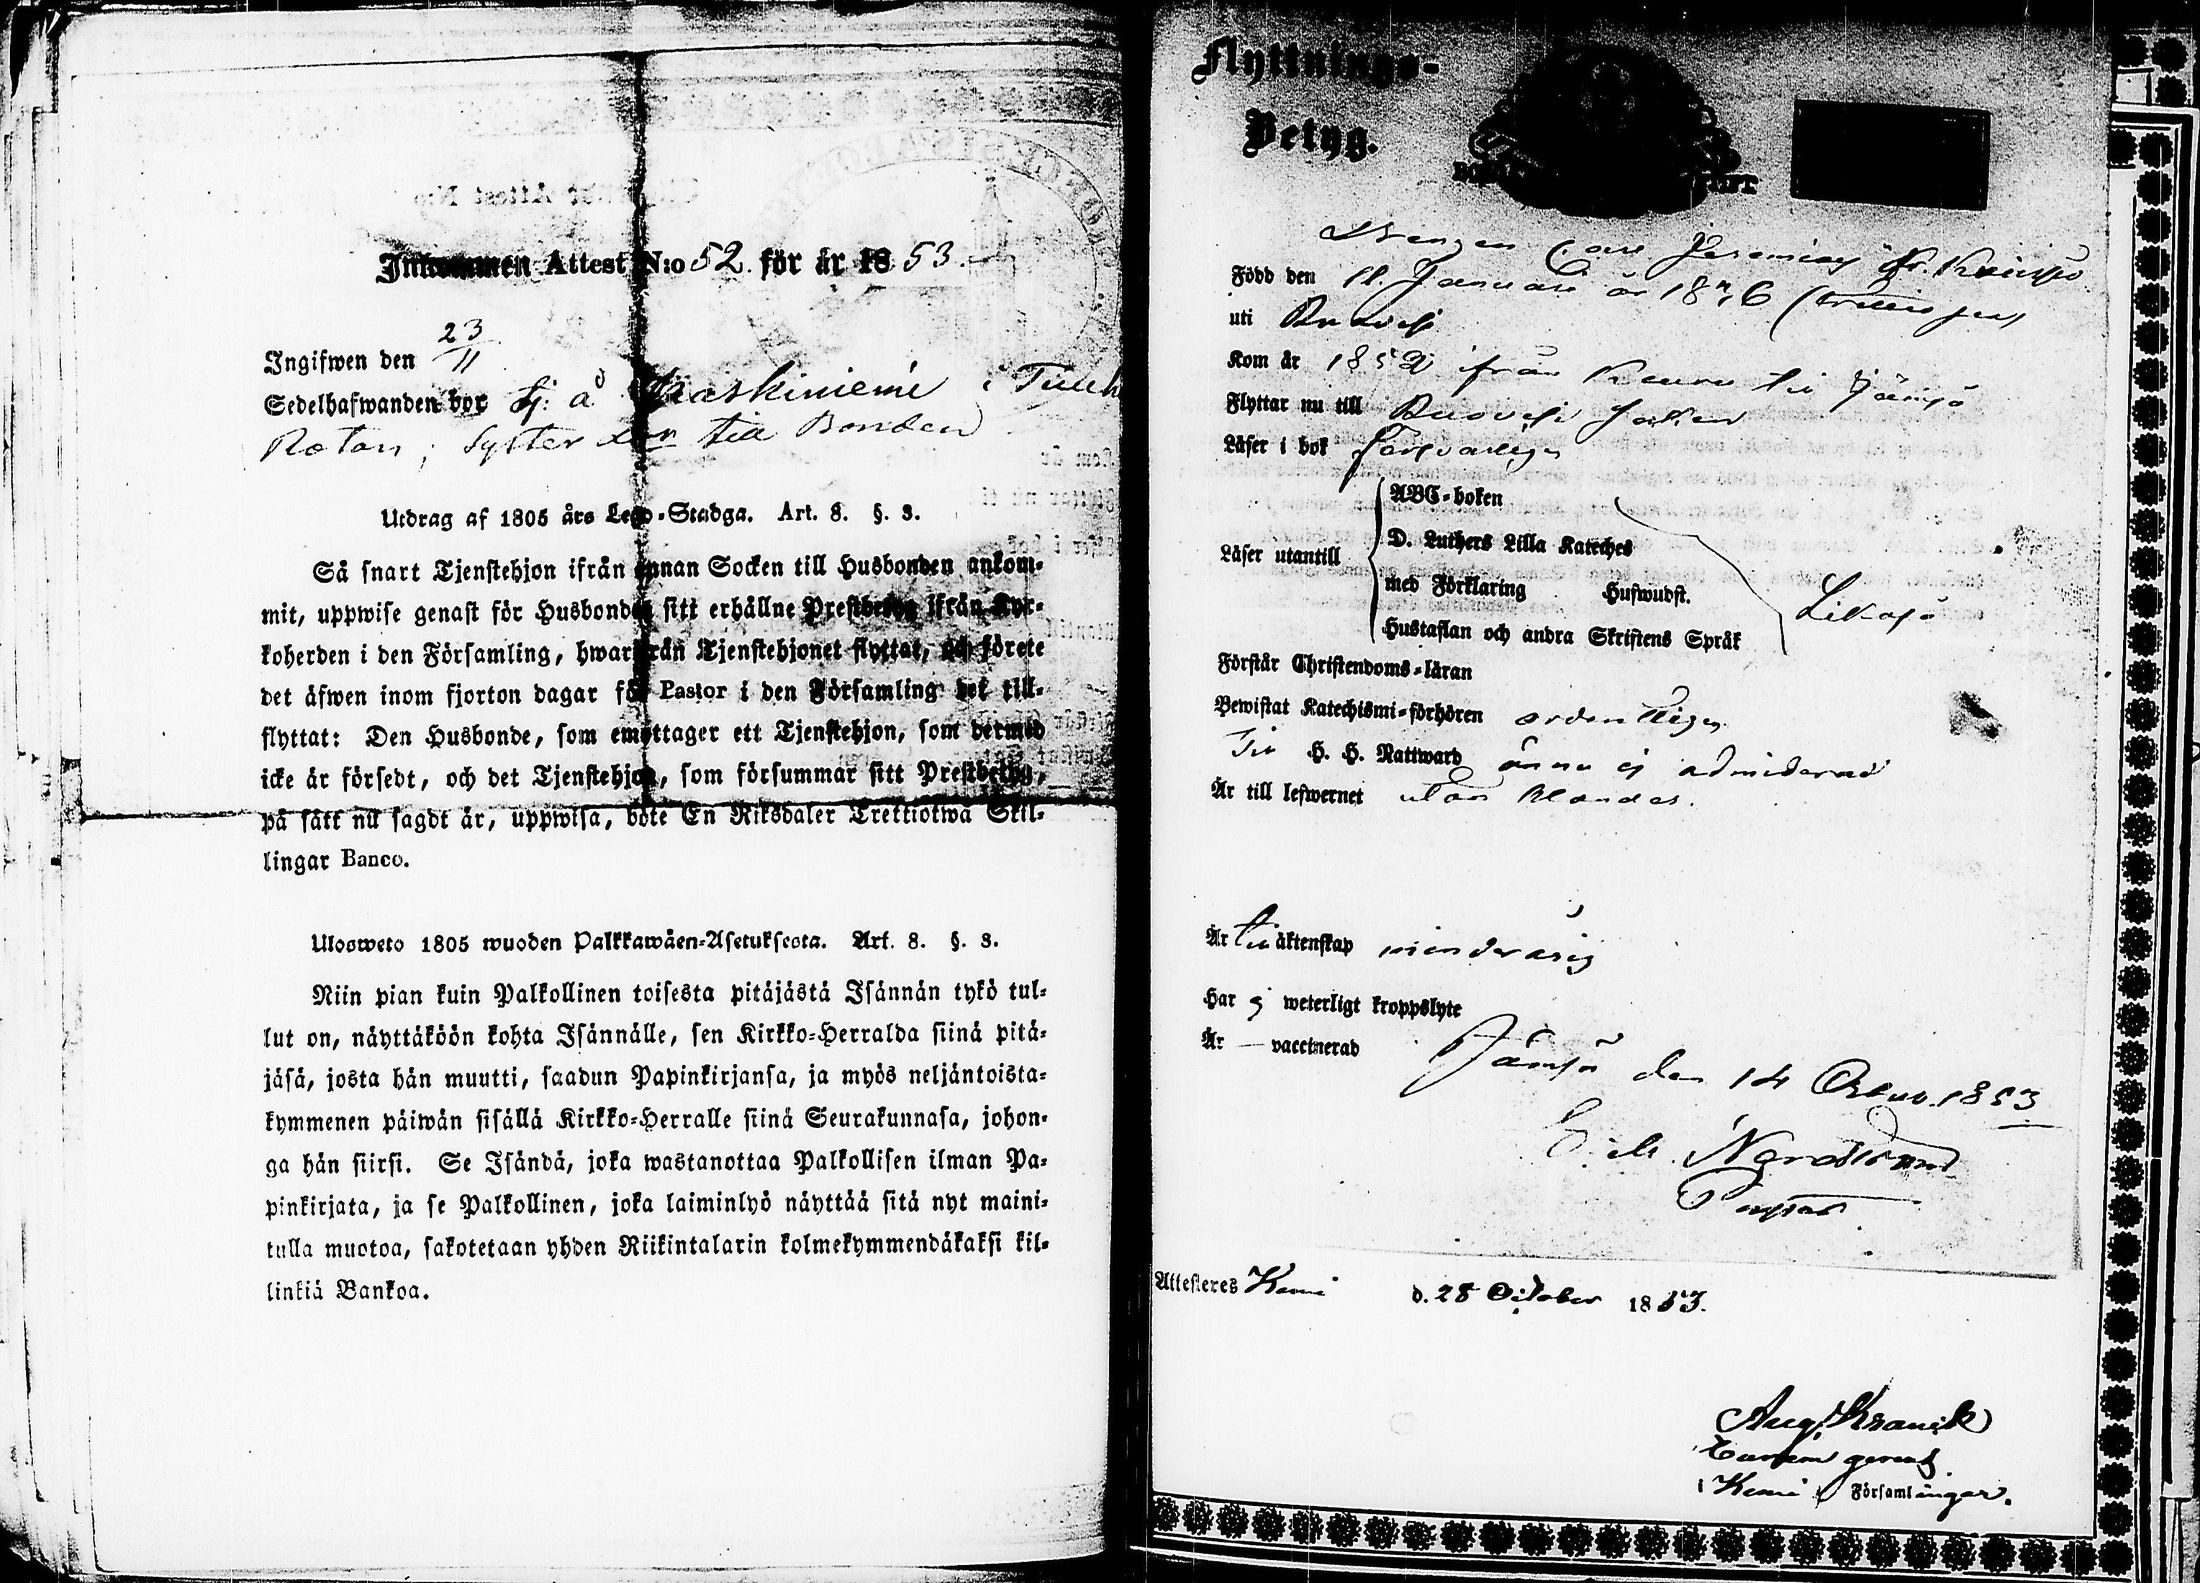 Inkommen Attest N:o 52. för år 1853.
Ingifwen den 23/11
Sedelhafwanden bor tj. å Kaskiniemi i
till Bonden
Utdrag af 1805 års Lego-Stadga. Art. 8. §. 3.
Så snart Tjenstehjon ifrån annan Socken till Husbonden ankom-
mit, uppwise genast för Husbonden sitt erhållne Prestbetyg ifrån Kyr-
koherden i den Församling, hwarifrån Tjenstehjonet flyttat, och förete
det äfwen inom fjorton dagar för Pastor i den Församling det till-
flyttat: Den Husbonde, som emottager ett Tjenstehjon, som dermed
icke är försedt, och det Tjenstehjon, som försummar sitt Prestbetyg,
på sätt nu sagdt är, uppwisa, böte En Riksdaler Trettiotwå Skil-
lingar Banco.
Ulosweto 1805 wuoden Palkkawäen-Asetuksesta. Art. 8. §. 3.
Niin pian kuin Palkollinen toisesta pitäjästä Isännän tykö tul-
lut on, näyttäköön kohta Isännälle, sen Kirkko-Herralda siinä pitä-
jäsä, josta hän muutti, saadun Papinkirjansa, ja myös neljäntoista-
kymmenen päiwän sisällä Kirkko-Herralle siinä Seurakunnasa, johon-
ga hän siirsi. Se Isändä, joka wastanottaa Palkollisen ilman Pa-
pinkirjata, ja se Palkollinen, joka laiminlyö näyttää sitä nyt maini-
tulla muotoa, sakotetaan yhden Riikintalarin kolmekymmendäkaksi kil-
linkiä Bankoa.
Flyttnings-
Betyg.
Drengen Carl Jeremias
Född den 11. Januari år 18
uti Ruovesi
Kom år 1852 ifrån Keuru till Jämsä
Flyttar nu till Ruovesi Socken
Läser i bok Försvarligen
ABC-boken
D. Luthers Lilla Kateches
Läser utantill
med Förklaring Hufwudst.
Likaså
Hustaflan och andra Skriftens Språk
Förstår Christendoms-läran
Bewistat Katechismi-förhören ordentligen
Till H. H. Nattward ännu ej admitterad
Är till lefwernet utan klander.
Är till äktenskap minderårig
Har ej weterligt kroppslyte
Är — vaccinerad
Jämsä den 14 Octob. 1853
Nordlund
Pastor
Attesteres Kemi d. 28 October 1853.
Aug. Kranck
i Kemi Församlingar.